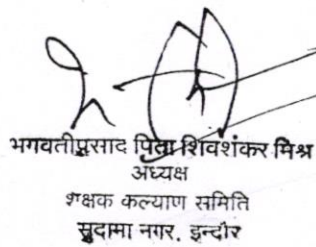 भगवतीप्रसाद पिता शिवशंकर मिश्र
अध्यक्ष
शिक्षक कल्याण समिति
सुदामा नगर. इन्दौर